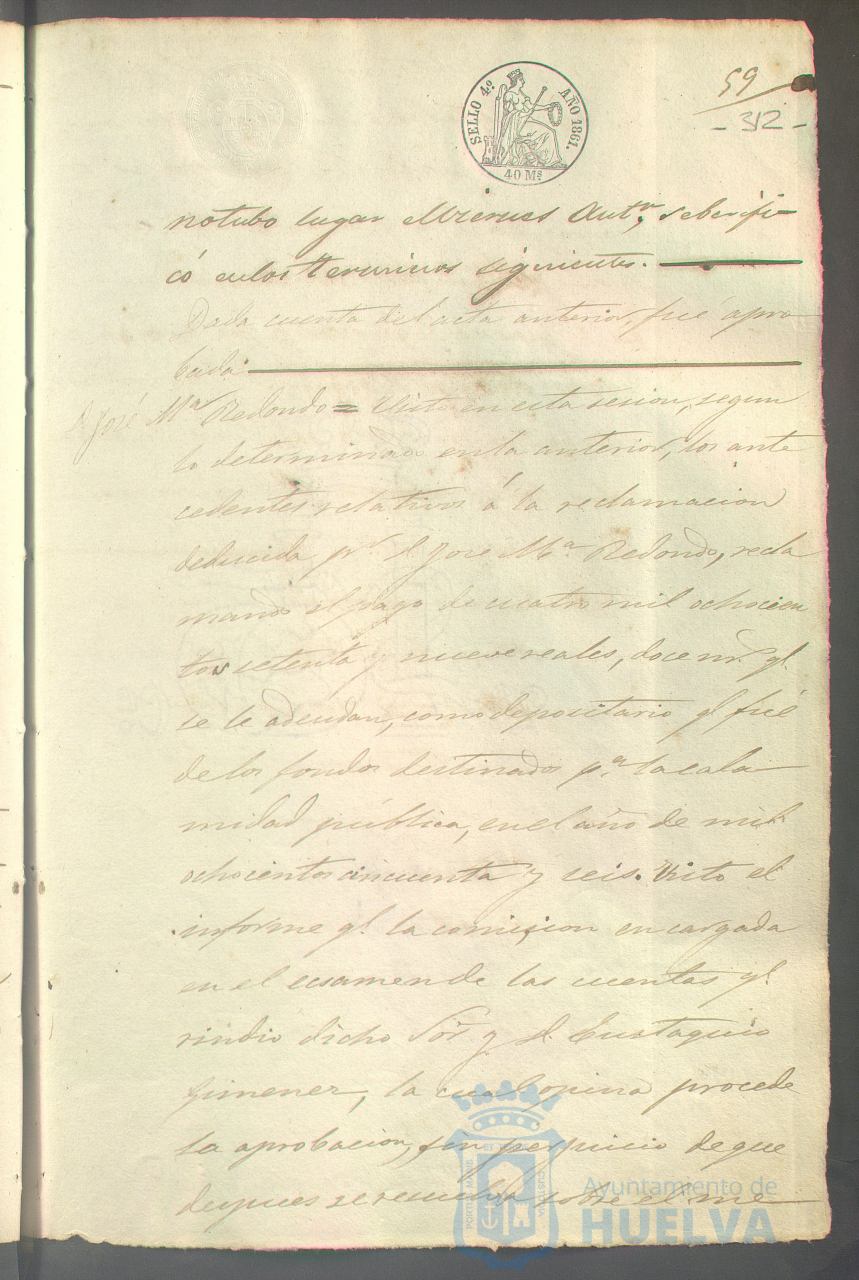 SELLO 4.º AÑO 1861.
40 Ms
59
- 312 -
no tubo lugar Miercoles Antr, se berifi-
có en los terminos siguientes.
Dada cuenta del acta anterior, fué apro
bada.
D. José Mª Redondo = Visto en esta sesion, segun
lo determinado en la anterior, los ante
cedentes relativos á la reclamacion
deducida pr. D. José Mª Redondo, recla
mando el pago de cuatro mil ochocien
tos setenta y nueve reales, doce mr. ql.
se le adeudan, como depositario ql. fué
de los fondos destinados pª. la cala
midad pública, en el año de mil
ochocientos cincuenta y seis. Visto el
informe ql. la comision encargada
en el ecsamen de las cuentas ql.
rindio dicho Sor. y D. Eustaquio
Gimenez, la cual opina procede
la aprobacion, sin perjuicio de que
depues se resuelva sobre el me
PORTUS MARIS ET TERRE CUSTODIA
Ayuntamiento de
HUELVA